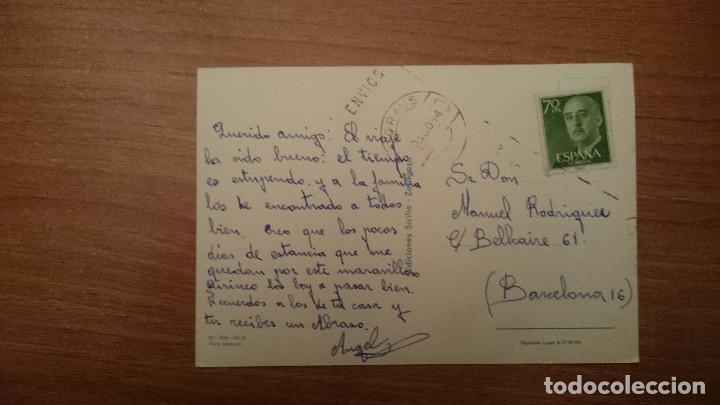 Querido amigo: El viaje
ha sido bueno: el tiempo
es estupendo y a la familia
los he encontrado a todos
bien. Creo que los pocos
días de estancia que me
quedan por este maravilloso
Pirineo los boy a pasar bien.
Recuerdos a los de tu casa y
tu recibes un Abrazo.
Angel
ENVIOS
GRAUS
Ediciones Sicilia - Zaragoza
70 CTS
ESPAÑA
Sr. Don
Manuel Rodriguez
c/ Belkaire 61.
(Barcelona 16)
Depósito Legal
todocoleccion
todocoleccion.net